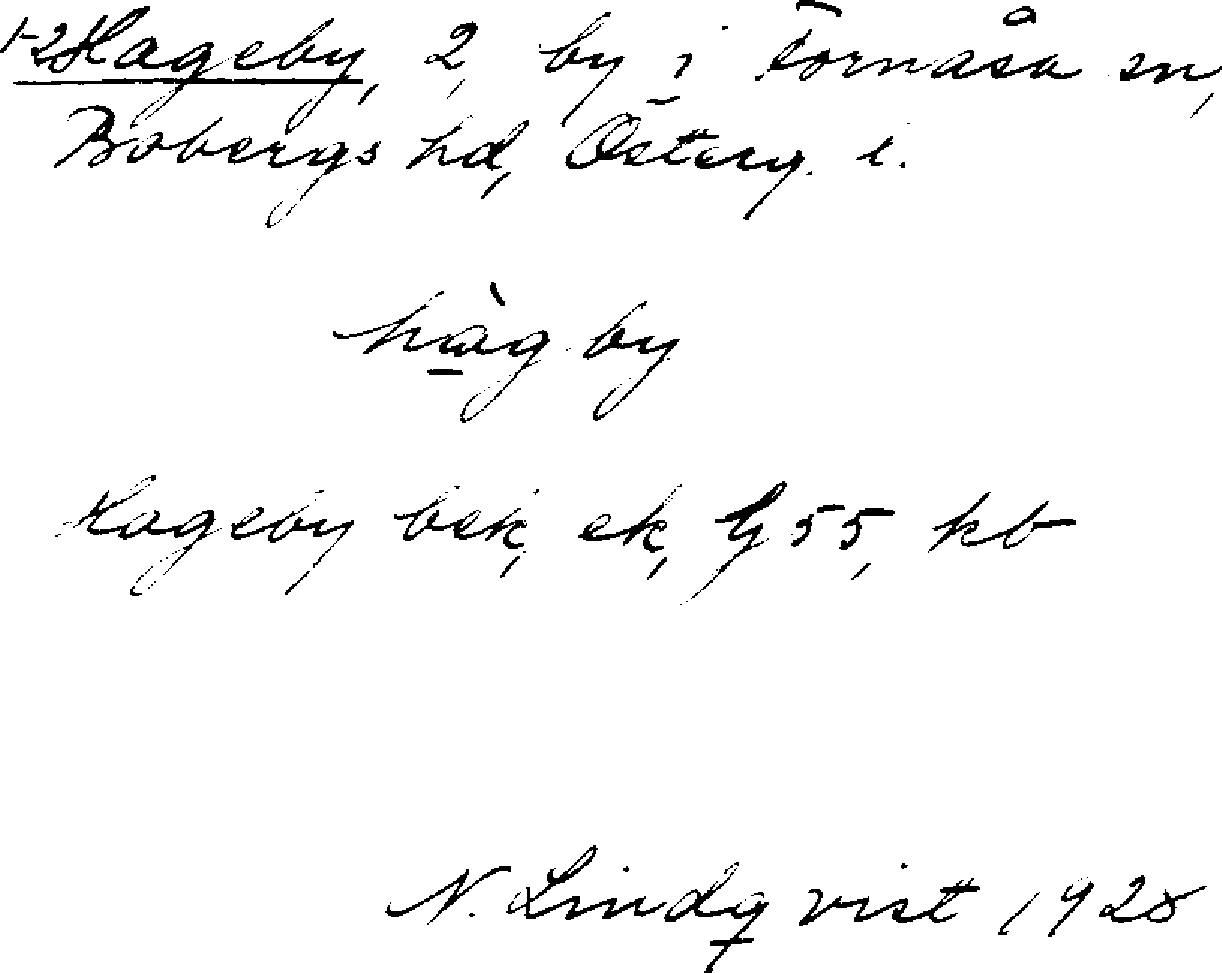 1-2 Hageby, 2, by i Fornåsa sn,
Bobergs hd, Österg. l.
hàg by
Hageby bek, ek, G 55, kb
N. Lindqvist 1928